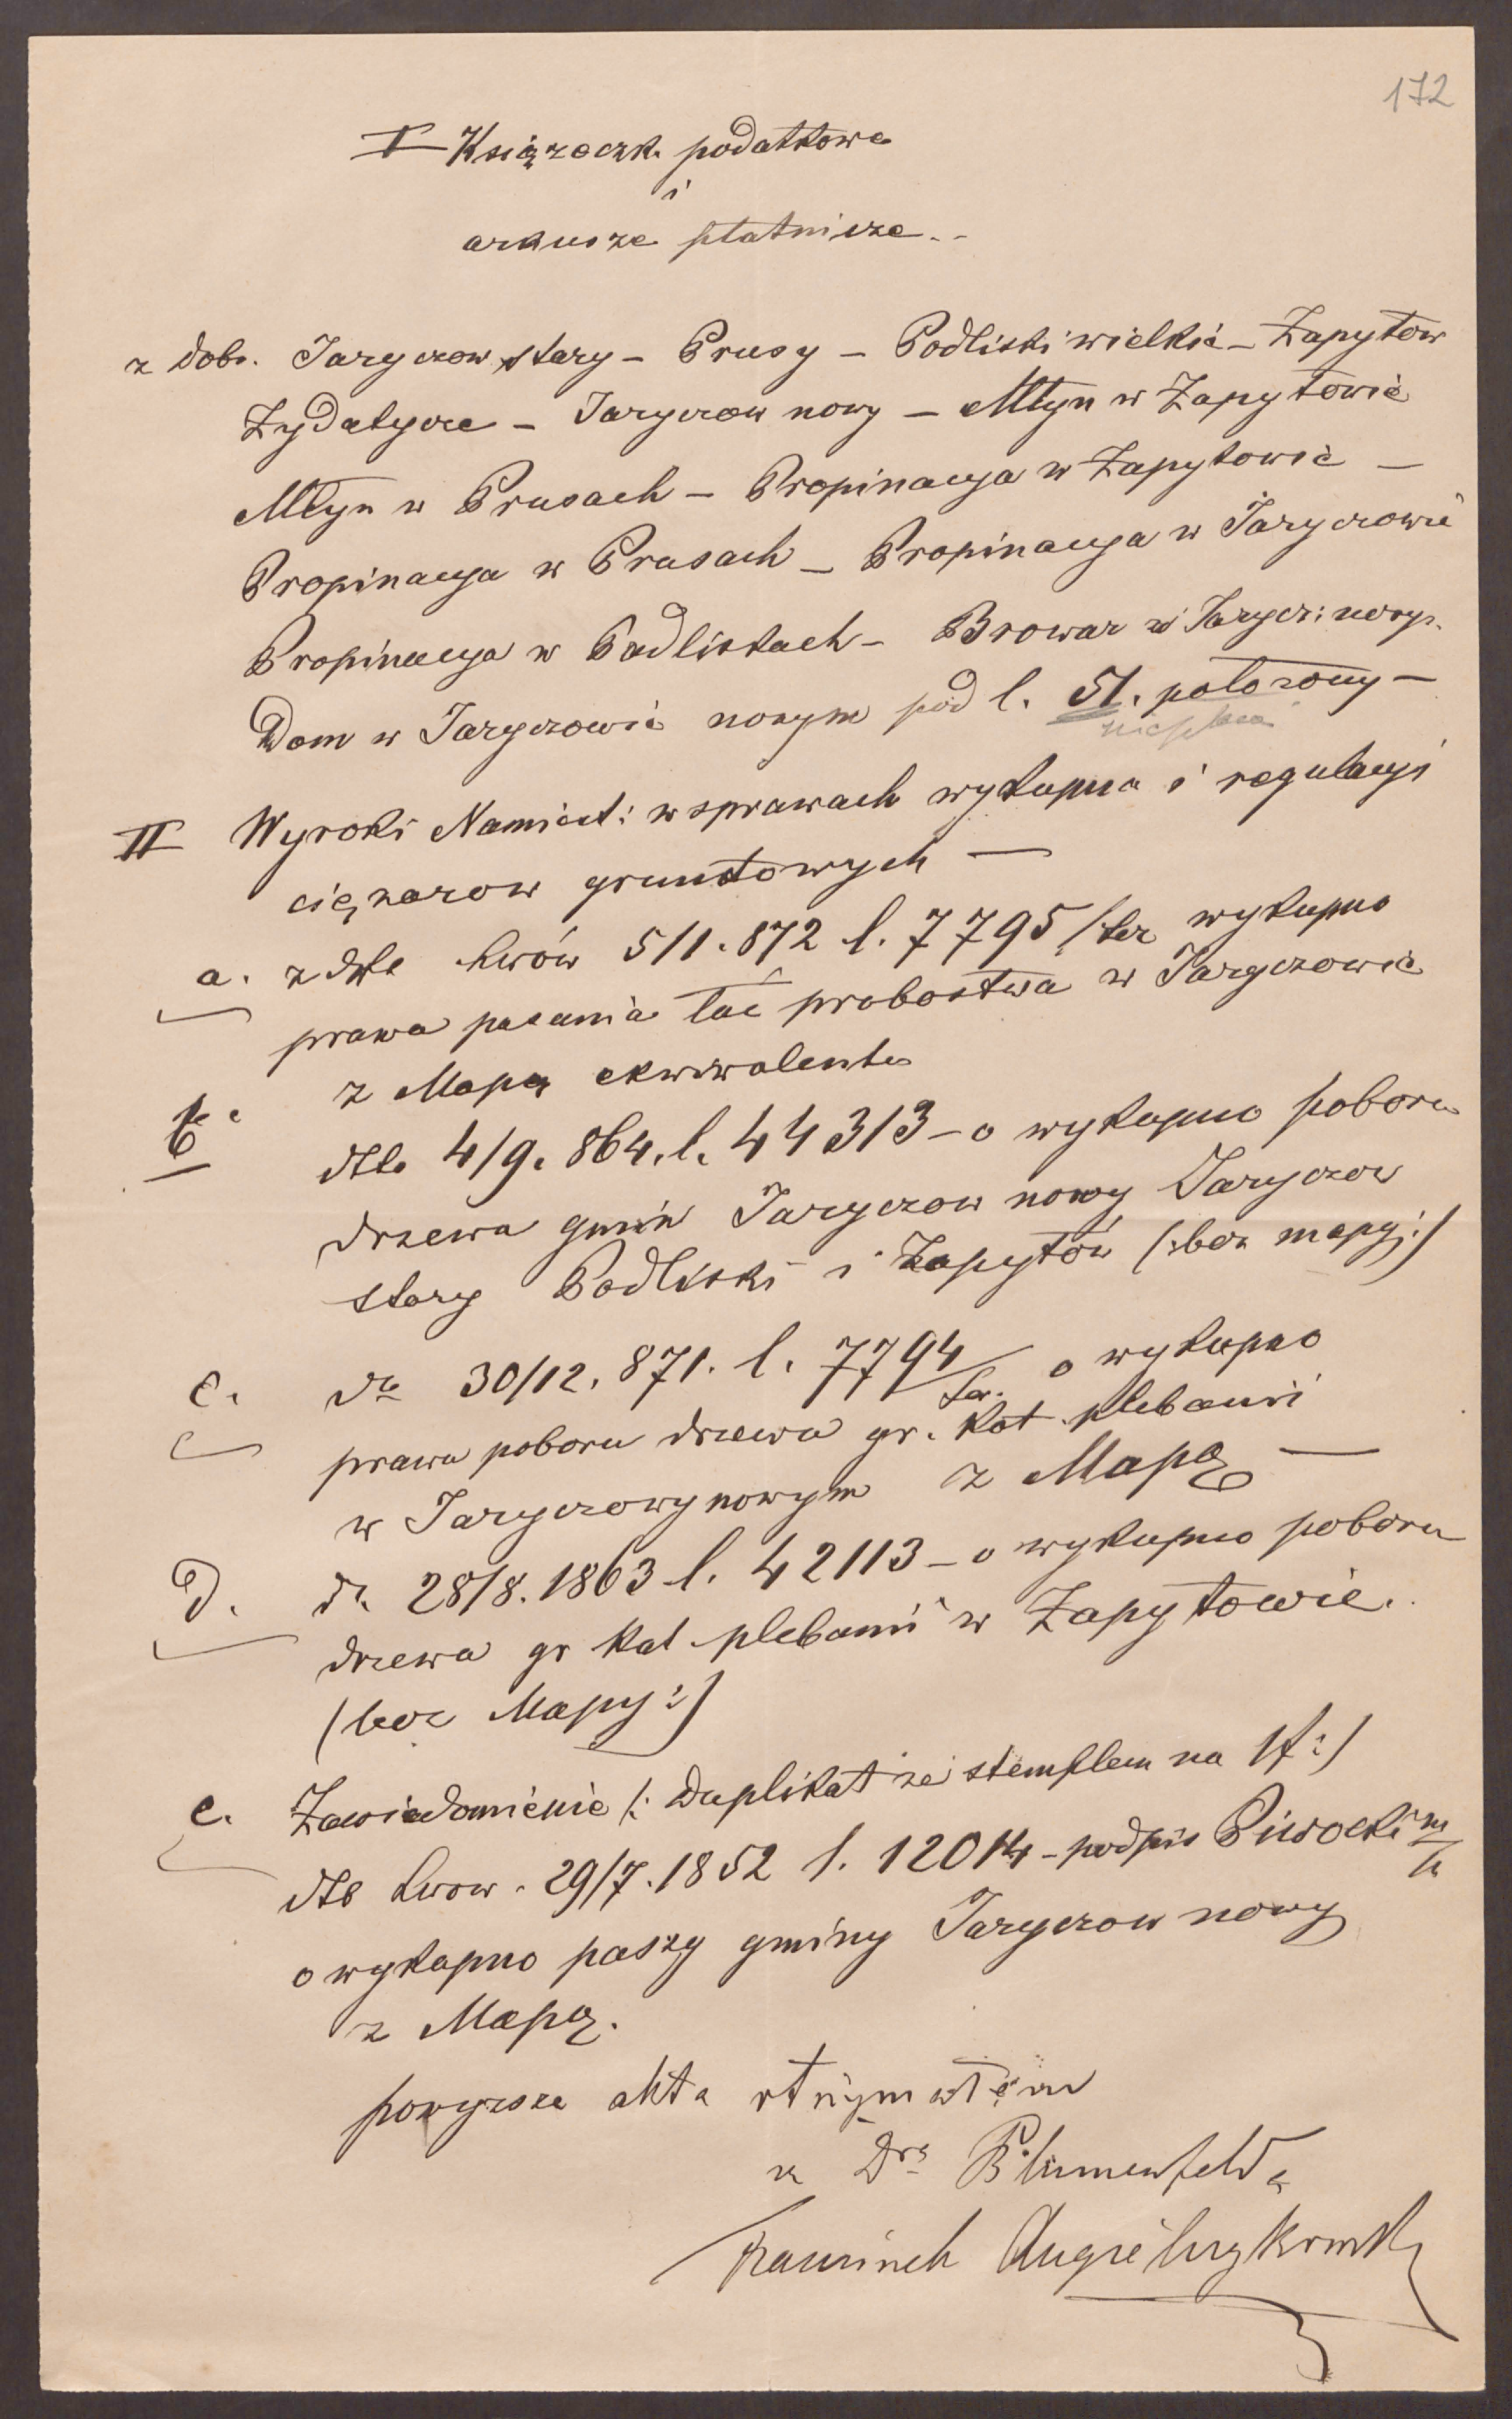 172
I Książeczk. podatkowa
i
arkusze płatnicze..
z dobr. Jaryczow stary – Prusy – Podliski wielkie – Zapytow
Zydatycze – Jaryczow nowy – Młyn w Zapytowie
Młyn w Prusach – Propinacya w Zapytowie –
Propinacya w Prusach – Propinacya w Jaryczowie
Propinacya w Podliskach – Browar w Jarycz: nowym.
Dom w Jaryczowie nowym pod l. 51. położony –
II Wyroki Namiest: w sprawach wykupna i regulacyi
ciężarow gruntowych –
a. z dto Lwów 5/1. 872 l. 7795/ter wykupno
prawa pasania łac probostwa w Jaryczowie
z Mapą ekwiwalentu
b. dto 4/9. 864. l. 44313 – o wykupno poboru
drzewa gmin Jaryczow nowy Jaryczow
stary Podliski i Zapytów (:bez mapy:)
c. dto 30/12. 871. l. 7794/ter. o wykupno
prawa poboru drzewa gr. kat. plebanii
w Jaryczowy nowym z Mapą –
d. dto 28/8. 1863 l. 42113 – o wykupno poboru
drzewa gr kat plebanii w Zapytowie.
(bez Mapy:)
e. Zawiadomienie (: duplikat ze stemplem na 1f:)
dto Lwow. 29/7. 1852 l. 12014 – podpis Piwocki m/p
o wykupno paszy gminy Jaryczow nowy
z Mapą.
powyzsze akta otrzymałem
z Dra Blumenfelda